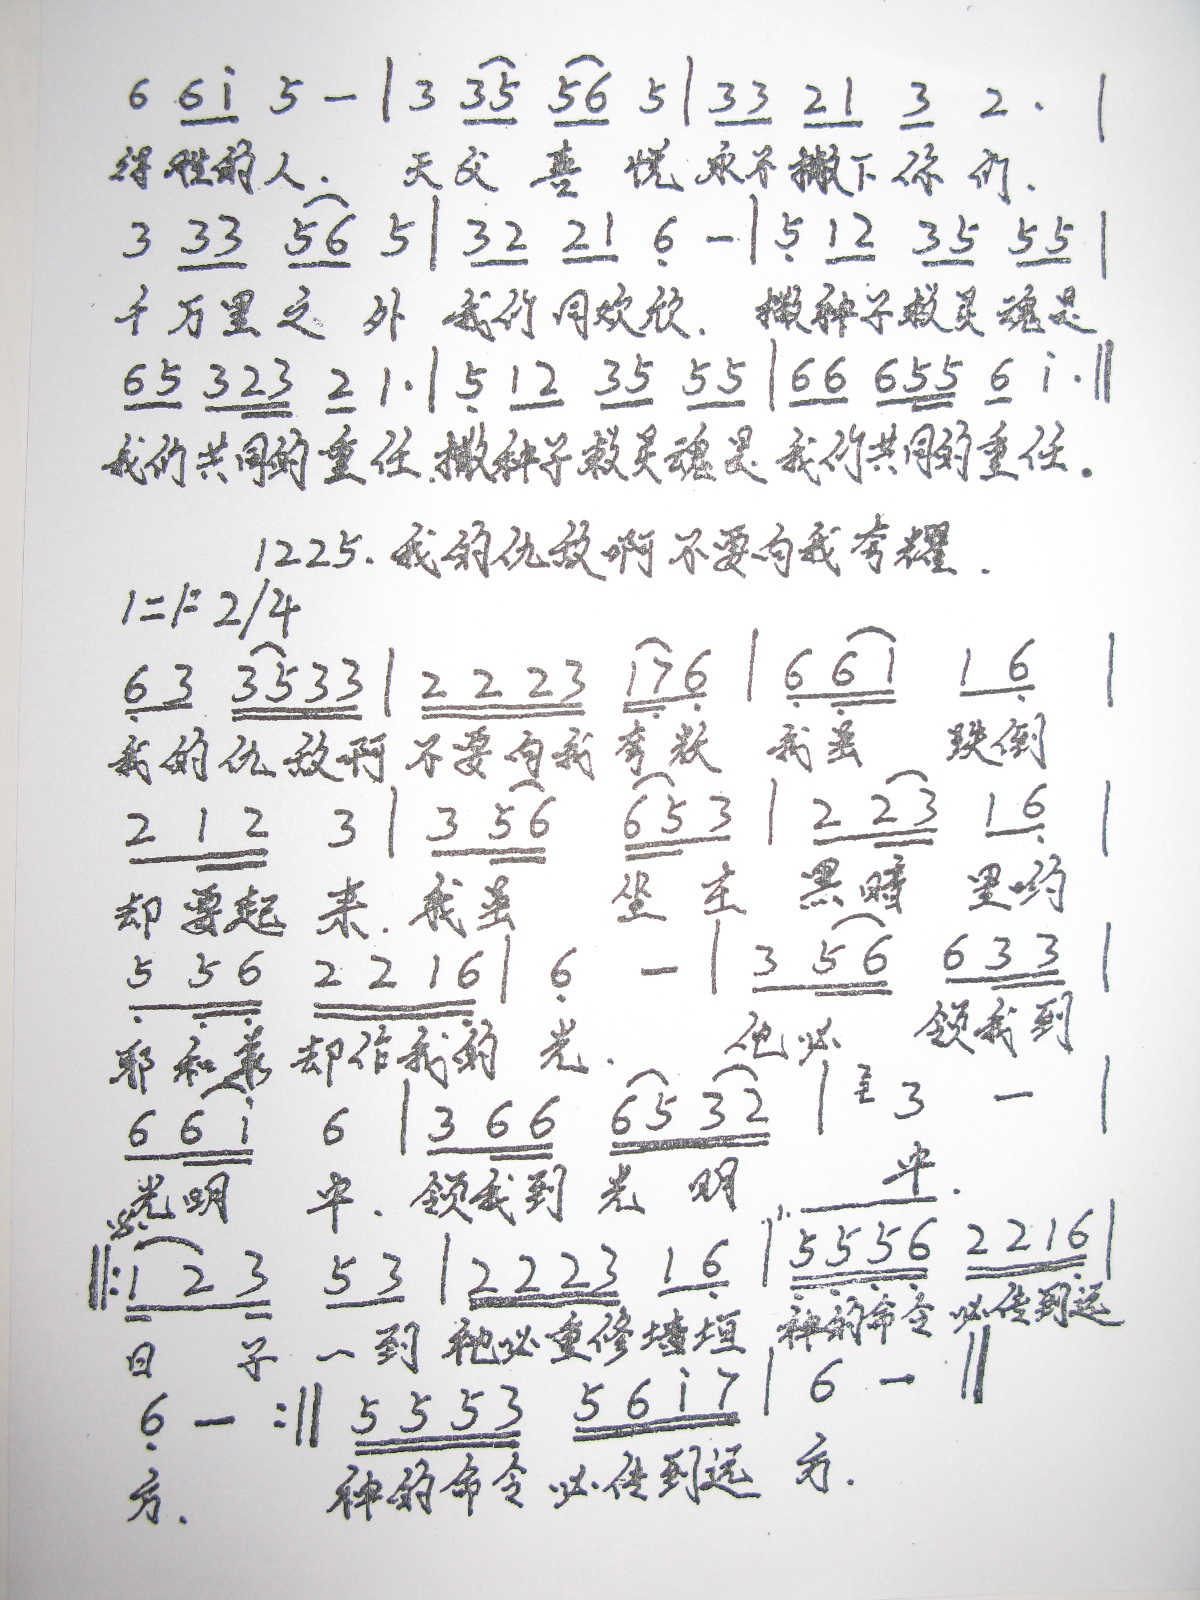 6 6i 5 — | 3 35 56 5 | 33 21 3 2 · |
得胜的人. 天父喜悦永不撇下你们.
3 33 56 5 | 32 21 6 — | 5 12 35 55 |
千万里之外 我们同欢欣. 撒种子救灵魂是
65 323 2 1· | 5 12 35 55 | 66 655 6 i · ||
我们共同的重任.撒种子救灵魂是我们共同的重任。
1225. 我的仇敌啊不要向我夸耀.
1=F 2/4
63 3533 | 2223 176 | 661 16 |
我的仇敌啊不要向我夸耀 我虽跌倒
212 3 | 356 653 | 223 16 |
却要起来.我虽坐在黑暗里哟
556 2216 | 6 — | 356 633 |
耶和华却作我的光. 他必领我到
66i 6 | 366 6532 | 3 — |
光明中. 领我到光明中.
||: 123 53 | 2223 16 | 5556 2216 |
日子一到祂必重修墙垣 神的命令必传到远
6 — :|| 5553 56i7 | 6 — ||
方. 神的命令必传到远方.